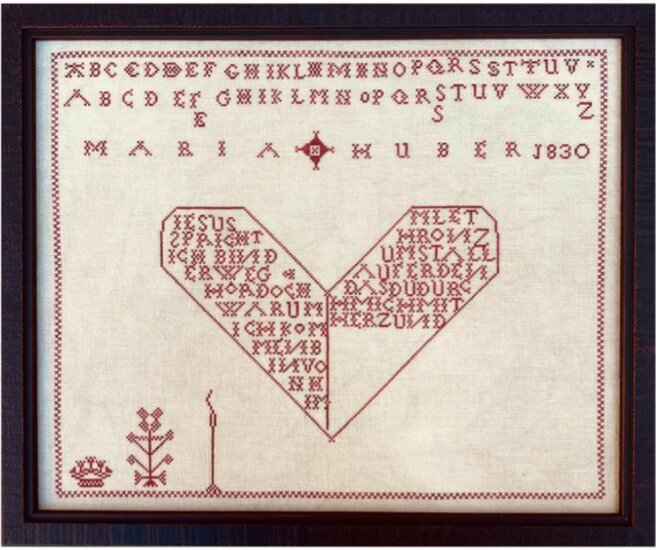 ABCEDDEFGHIKLMMNNOPQRSSTTUV
ABCDEFGHIKLMNOPQRSTUVWXY
E S Z
MARIA HUBER 1830
IESUS
SPRICHT
ICH BIND
ERWEG
HORDOCH
WARUM
ICHKOM
MENB
INVO
NH
IM
MLET
HRONZ
UMSTALL
AUFERDEN
DASDUDURC
HMICHMIT
HERZUND